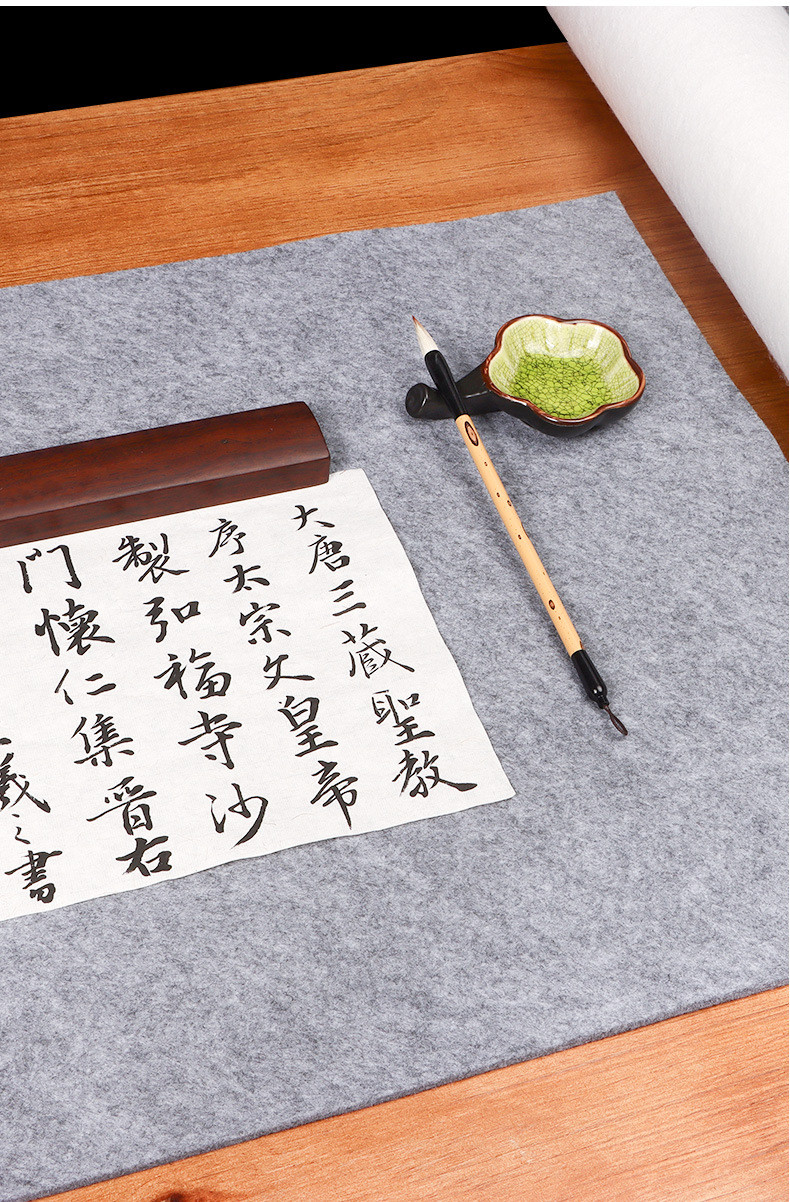 大唐三藏聖教
序太宗文皇帝
製弘福寺沙
門懷仁集晉右
羲之書